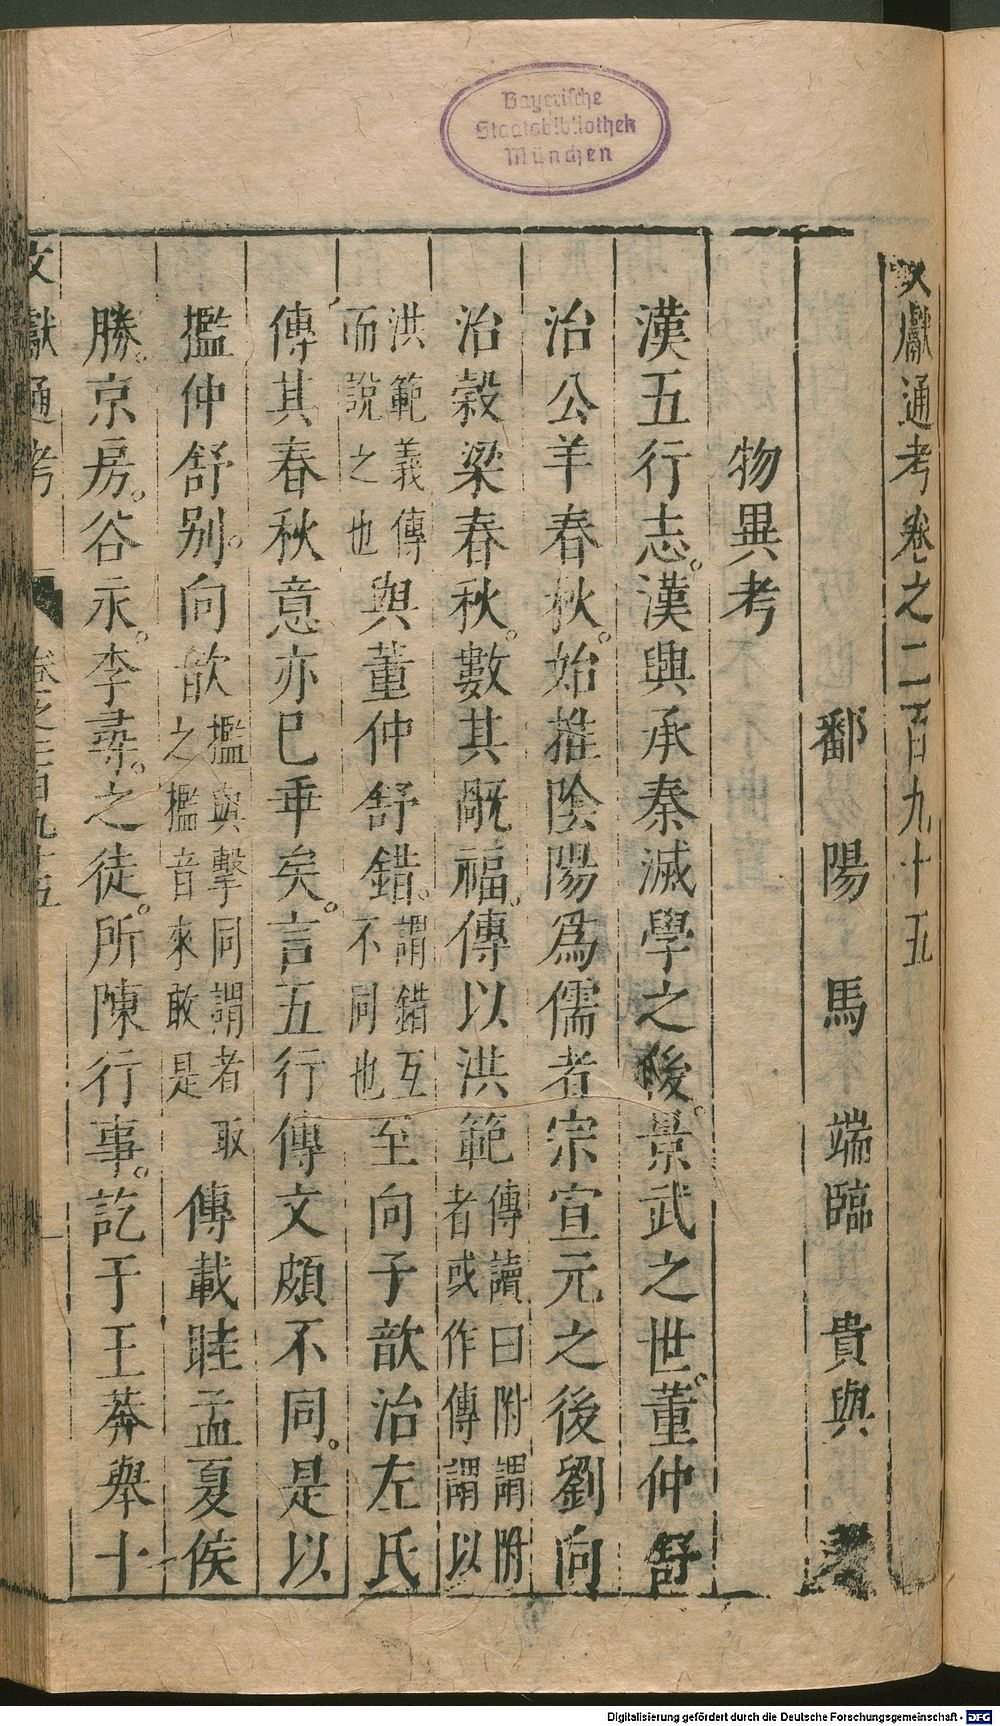 Bayerische
Staatsbibliothek
München
文獻通考卷之二百九十五
鄱陽馬端臨貴與著
物異考
漢五行志。漢興承秦滅學之後。景武之世。董仲舒
治公羊春秋。始推陰陽爲儒者宗宣元之後劉向
治穀梁春秋。數其旤福。傳以洪範傳讀曰附謂附者或作傳謂以
洪範義傳而說之也與董仲舒錯。謂錯互不同也至向子歆治左氏
傳其春秋意亦巳乖矣。言五行傳文頗不同。是以
㩜仲舒别。向歆㩜與擥同謂者取之㩜音來敢是傳載眭孟夏侯
勝。京房。谷永。李尋。之徒。所陳行事。訖于王莽舉十
文獻通考 卷之二百九十五 一
Digitalisierung gefördert durch die Deutsche Forschungsgemeinschaft - DFG